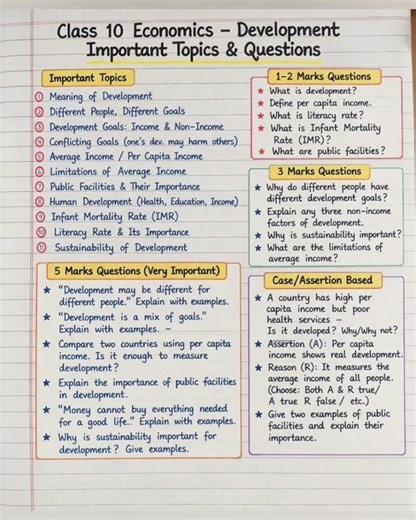 Class 10 Economics – Development
Important Topics & Questions
Important Topics
1 Meaning of Development
2 Different People, Different Goals
3 Development Goals: Income & Non-Income
4 Conflicting Goals (one's dev. may harm others)
5 Average Income / Per Capita Income
6 Limitations of Average Income
7 Public Facilities & Their Importance
8 Human Development (Health, Education, Income)
9 Infant Mortality Rate (IMR)
10 Literacy Rate & Its Importance
11 Sustainability of Development
1-2 Marks Questions
★ What is development?
★ Define per capita income.
★ What is literacy rate?
★ What is Infant Mortality
Rate (IMR)?
★ What are public facilities?
3 Marks Questions
★ Why do different people have
different development goals?
★ Explain any three non-income
factors of development.
★ Why is sustainability important?
★ What are the limitations of
average income?
5 Marks Questions (Very Important)
★ "Development may be different for
different people." Explain with examples.
★ "Development is a mix of goals."
Explain with examples. –
★ Compare two countries using per capita
income. Is it enough to measure
development?
★ Explain the importance of public facilities
in development.
★ "Money cannot buy everything needed
for a good life." Explain with examples.
★ Why is sustainability important for
development? Give examples.
Case/Assertion Based
★ A country has high per
capita income but poor
health services –
Is it developed? Why/Why not?
★ Assertion (A): Per capita
income shows real development.
★ Reason (R): It measures the
average income of all people.
(Choose: Both A & R true/
A true R false / etc.)
★ Give two examples of public
facilities and explain their
importance.